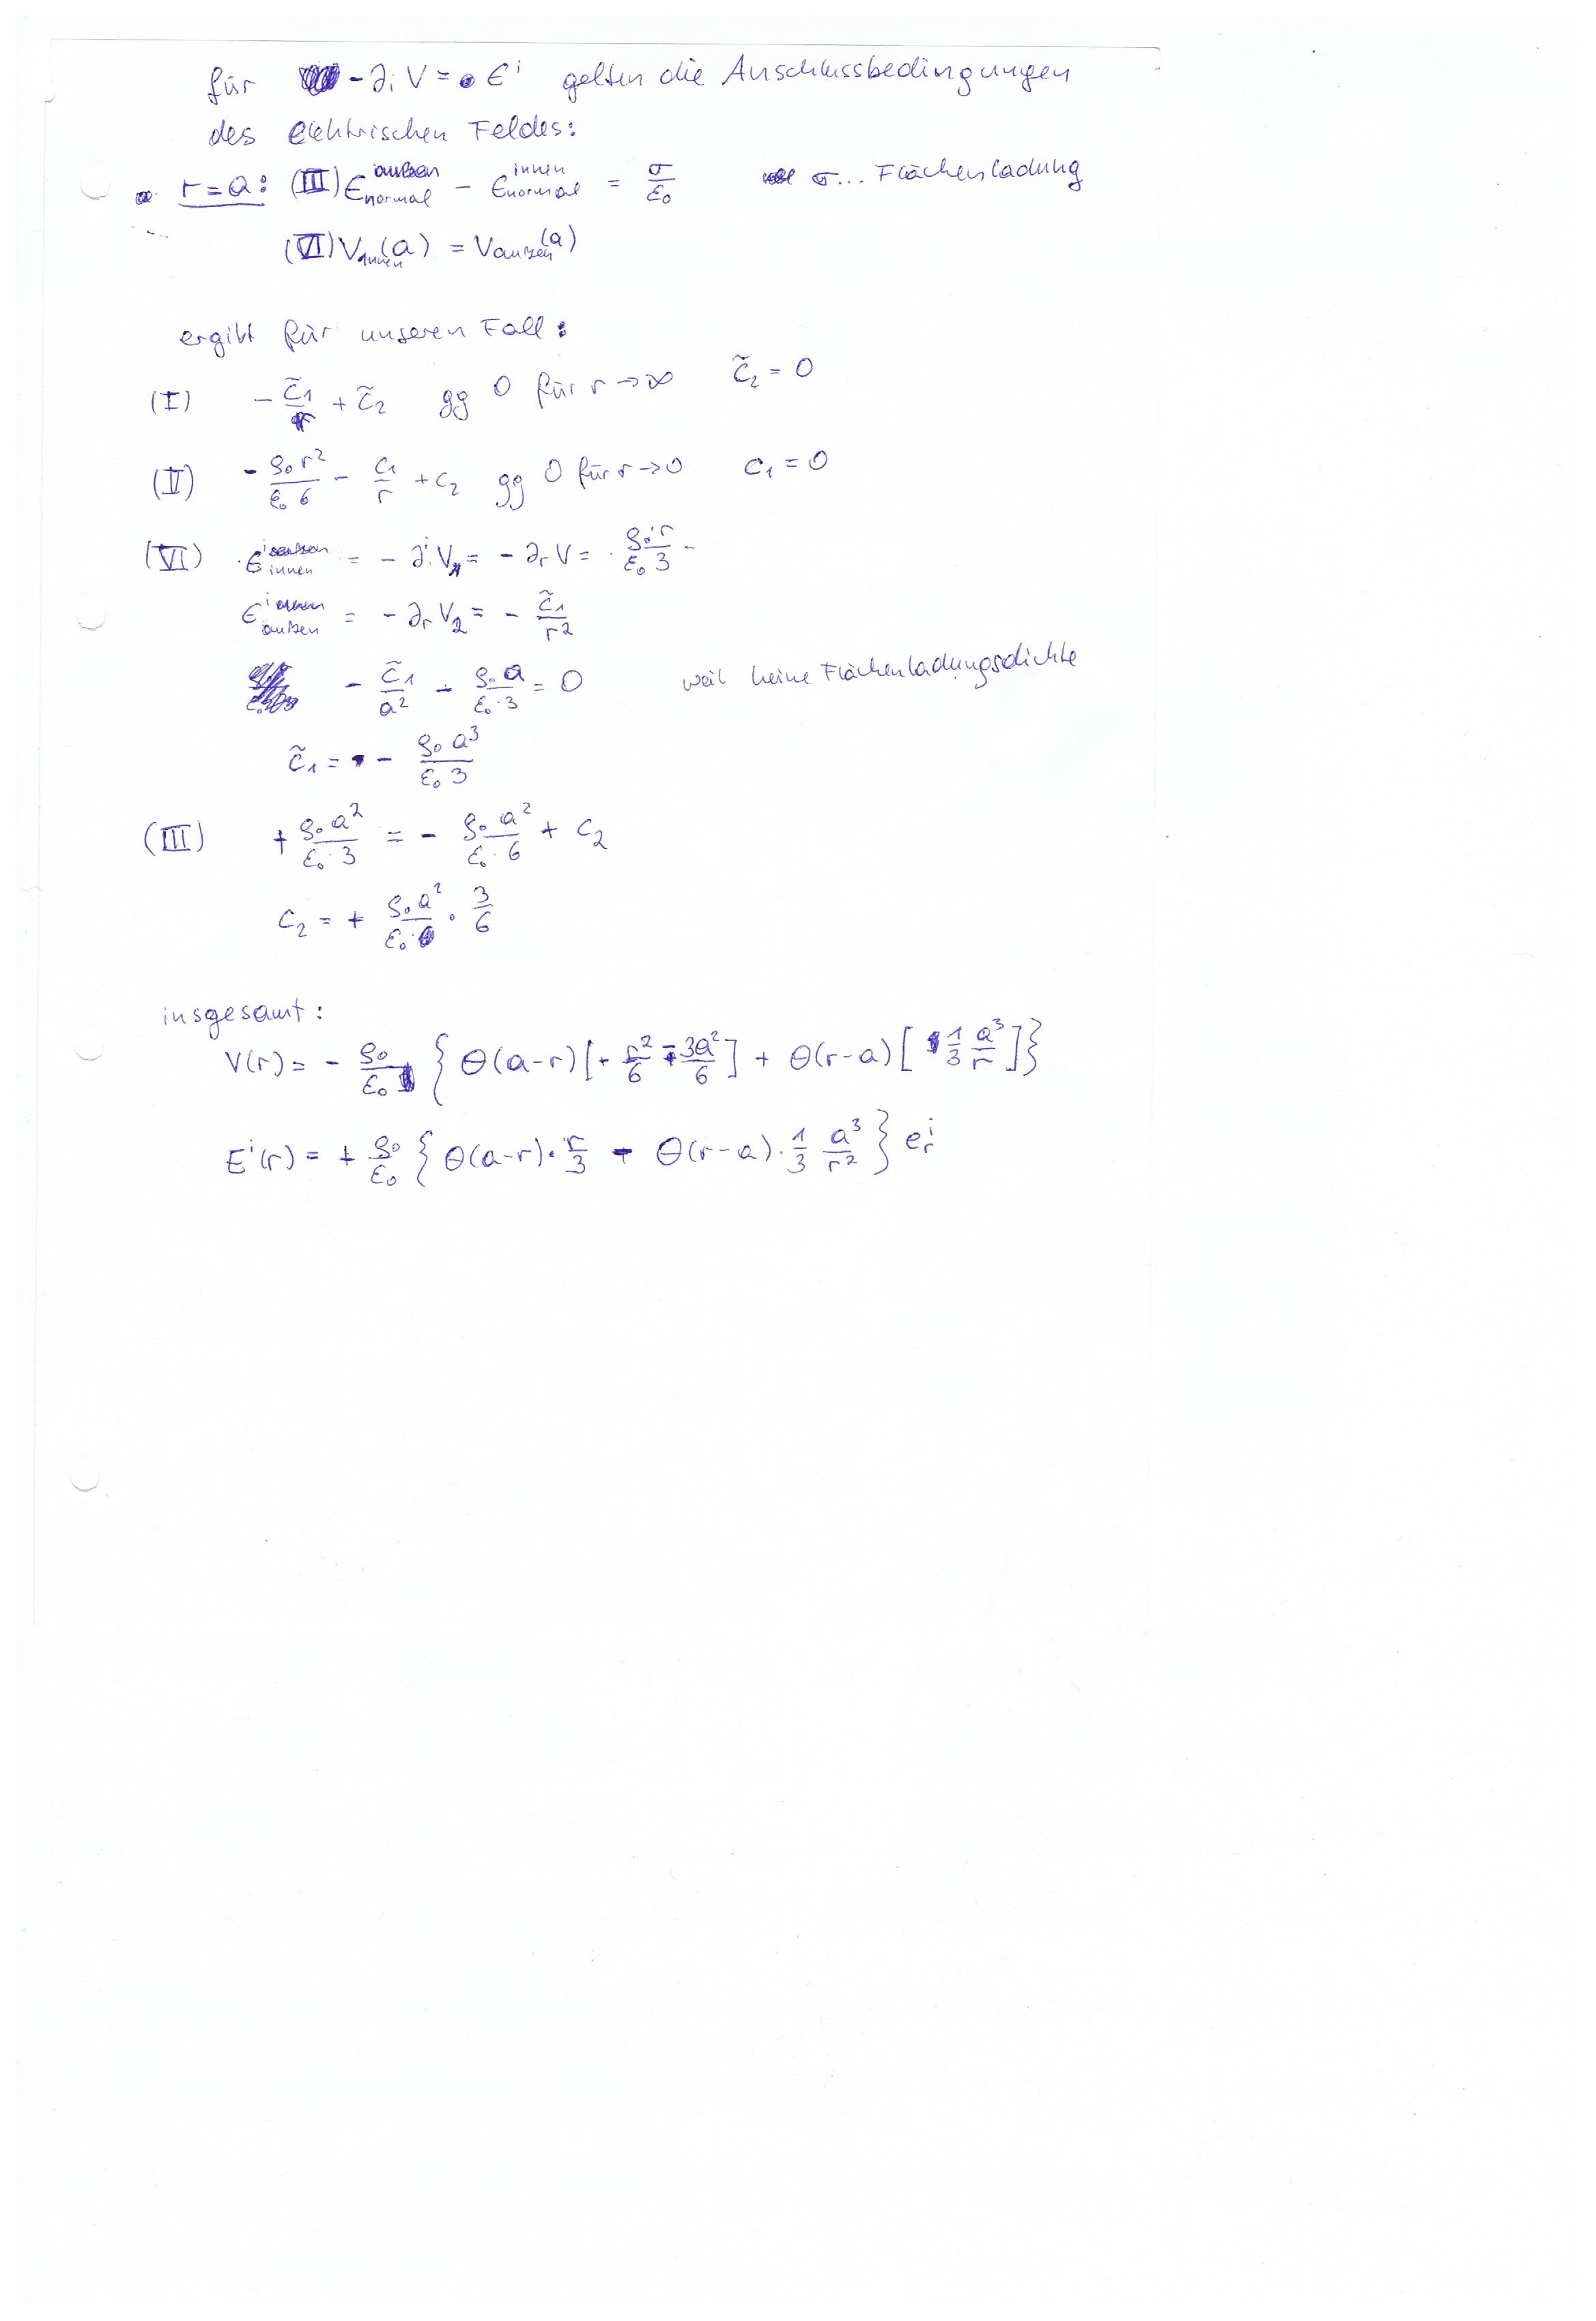 für - ∂i V = E^i gelten die Anschlussbedingungen
des elektrischen Feldes:
r=a: (III) E_normal^außen - E_normal^innen = σ/ε₀ σ... Flächenladung
(VI) V_innen(a) = V_außen(a)
ergibt für unseren Fall:
(I) - c̃₁/r + c̃₂ gg 0 für r→∞ c̃₂ = 0
(II) - ρ₀r²/(ε₀ 6) - c₁/r + c₂ gg 0 für r→0 c₁ = 0
(VI) E^i_innen = - ∂^i V₁ = - ∂r V = ρ₀·r/(ε₀ 3)
E^i_außen = - ∂r V₂ = - c̃₁/r²
- c̃₁/a² - ρ₀a/(ε₀·3) = 0 weil keine Flächenladungsdichte
c̃₁ = - ρ₀a³/(ε₀ 3)
(III) + ρ₀a²/(ε₀·3) = - ρ₀a²/(ε₀·6) + c₂
c₂ = + ρ₀a²/ε₀ · 3/6
insgesamt:
V(r) = - ρ₀/ε₀ { Θ(a-r) [+ r²/6 - 3a²/6] + Θ(r-a) [ 1/3 a³/r ] }
E^i(r) = + ρ₀/ε₀ { Θ(a-r)·r/3 - Θ(r-a)·1/3 a³/r² } e_r^i